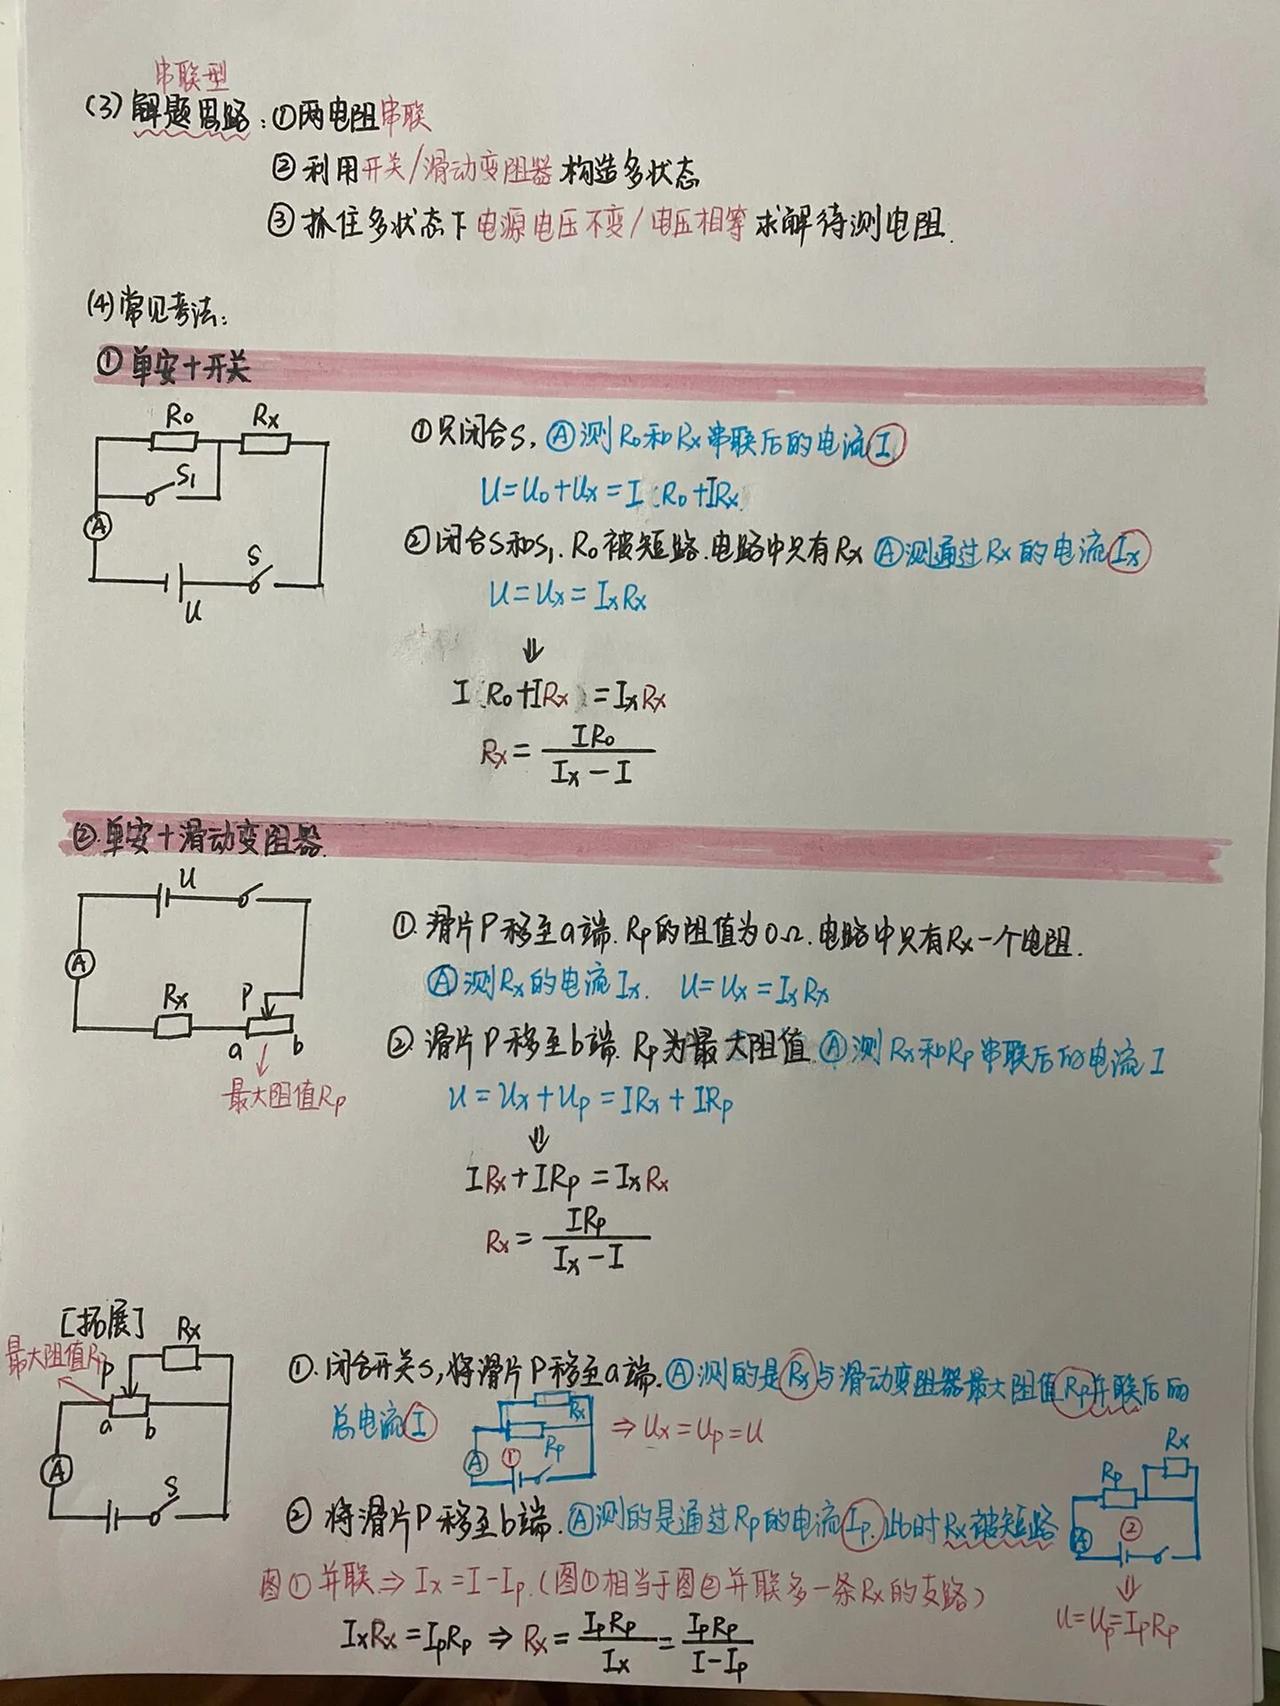 串联型
(3) 解题思路：①两电阻串联
②利用开关/滑动变阻器 构造多状态
③抓住多状态下电源电压不变/电压相等求解待测电阻.
(4)常见考法：
①单安+开关
R₀ Rx
S₁
A
S
U
①只闭合S，Ⓐ测R₀和Rx串联后的电流I
U=U₀+Ux=I R₀+IRx
②闭合S和S₁.R₀被短路.电路中只有Rx Ⓐ测通过Rx的电流Ix
U=Ux=IxRx
⇓
I R₀+IRx =IxRx
Rx= IR₀ / (Ix-I)
②.单安+滑动变阻器.
U
A
Rx P
a b
最大阻值Rp
①.滑片P移至a端.Rp的阻值为0Ω.电路中只有Rx一个电阻.
Ⓐ测Rx的电流Ix. U=Ux=IxRx
②.滑片P移至b端.Rp为最大阻值.Ⓐ测Rx和Rp串联后的电流I
U=Ux+Up=IRx+IRp
⇓
IRx+IRp=IxRx
Rx= IRp / (Ix-I)
[拓展]
最大阻值Rp
P Rx
a b
A
S
①.闭合开关S,将滑片P移至a端.Ⓐ测的是Rx与滑动变阻器最大阻值Rp并联后的
总电流I
Rx
Rp
A ①
⇒Ux=Up=U
②将滑片P移至b端.Ⓐ测的是通过Rp的电流Ip.此时Rx被短路
Rx
Rp
A ②
⇓
U=Up=IpRp
图①并联⇒Ix=I-Ip.(图①相当于图②并联多一条Rx的支路)
IxRx=IpRp⇒Rx= IpRp / Ix = IpRp / (I-Ip)